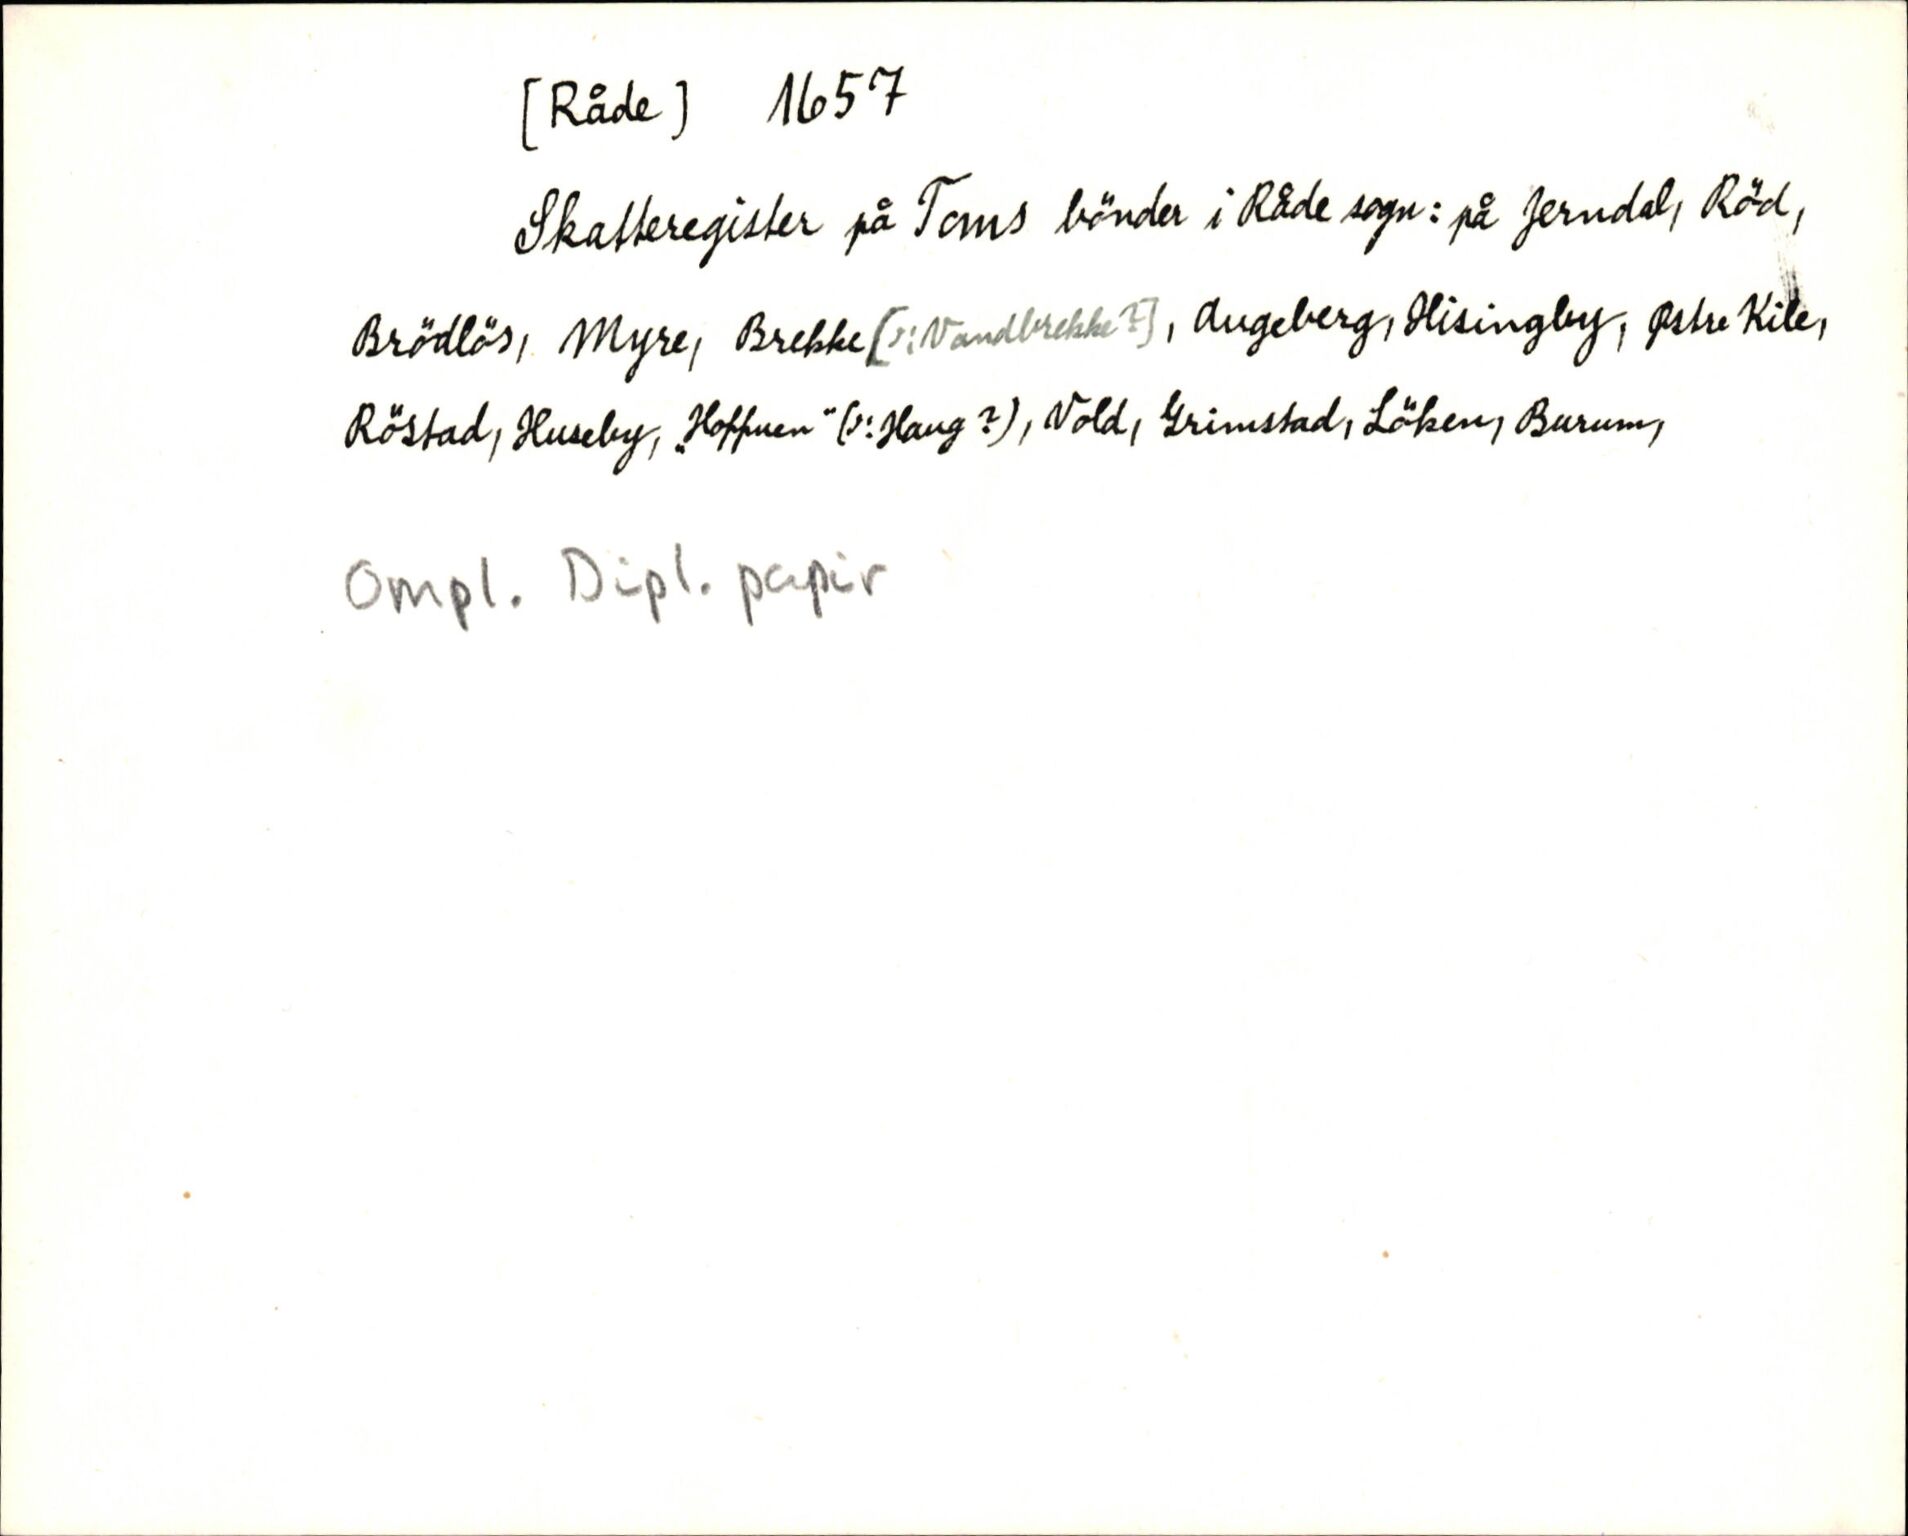 [Råde] 1657
Skatteregister på Toms bönder i Råde sogn: på Jerndal, Röd,
Brödlös, Myre, Brekke [ɔ: Vandbrekke?], Augeberg, Hisingby, Østre Kile,
Röstad, Huseby, „Hoffuen" (ɔ: Haug?), Vold, Grimstad, Löken, Burum,
Ompl. Dipl. papir